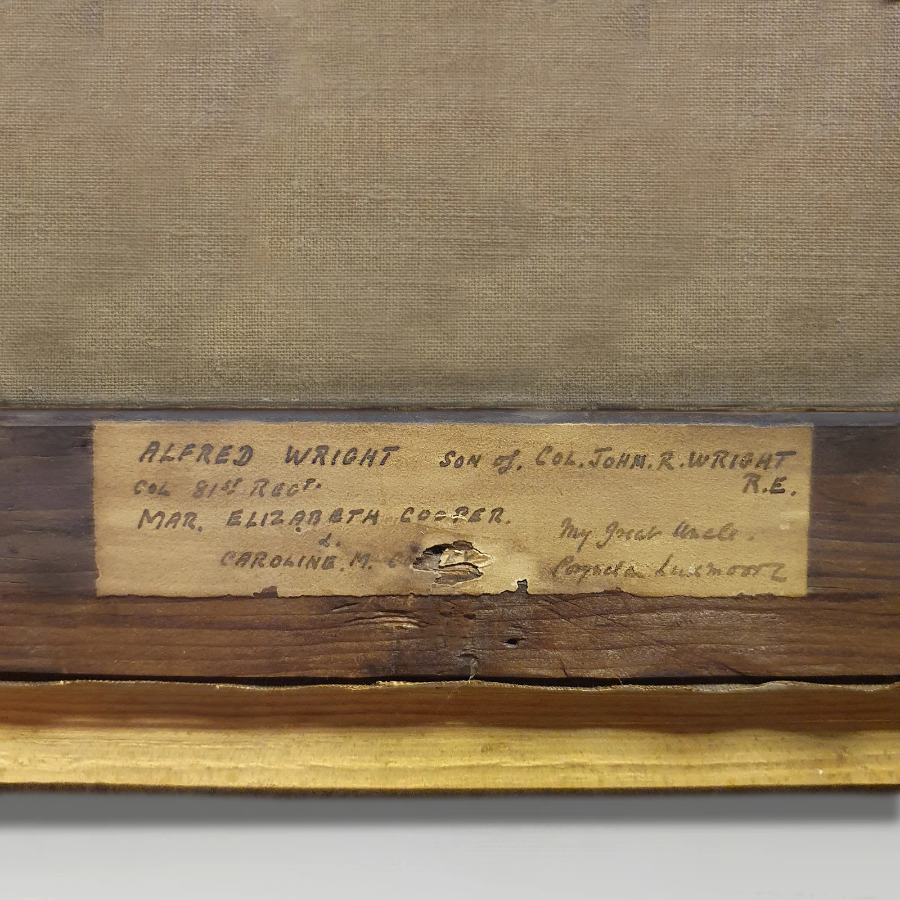 ALFRED WRIGHT SON of. COL. JOHN. R. WRIGHT
R.E.
COL 81st REGT.
MAR. ELIZABETH COOPER.
&.
CAROLINE. M.
My Great Uncle.
Luxmoore